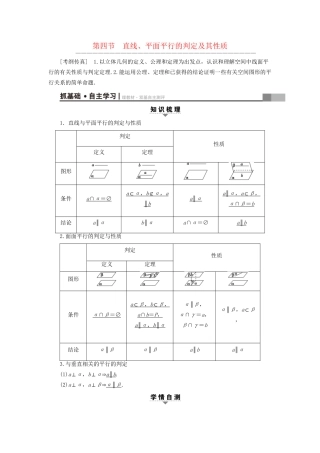 第四节 直线、平面平行的判定及其性质
[考纲传真] 1.以立体几何的定义、公理和定理为出发点，认识和理解空间中线面平
行的有关性质与判定定理.2.能运用公理、定理和已获得的结论证明一些有关空间图形的平
行关系的简单命题.
抓基础·自主学习
知识梳理
1．直线与平面平行的判定与性质
判定 性质
定义 定理
图形
条件 a∩α=∅
结论 a∥α b∥α a∩α=∅ a∥b
2.面面平行的判定与性质
判定 性质
定义 定理
图形
条件 α∩β=∅
结论 α∥β α∥β a∥b a∥α
3.与垂直相关的平行的判定
(1)a⊥α，b⊥α⇒a∥b.
(2)a⊥α，a⊥β⇒α∥β.
学情自测